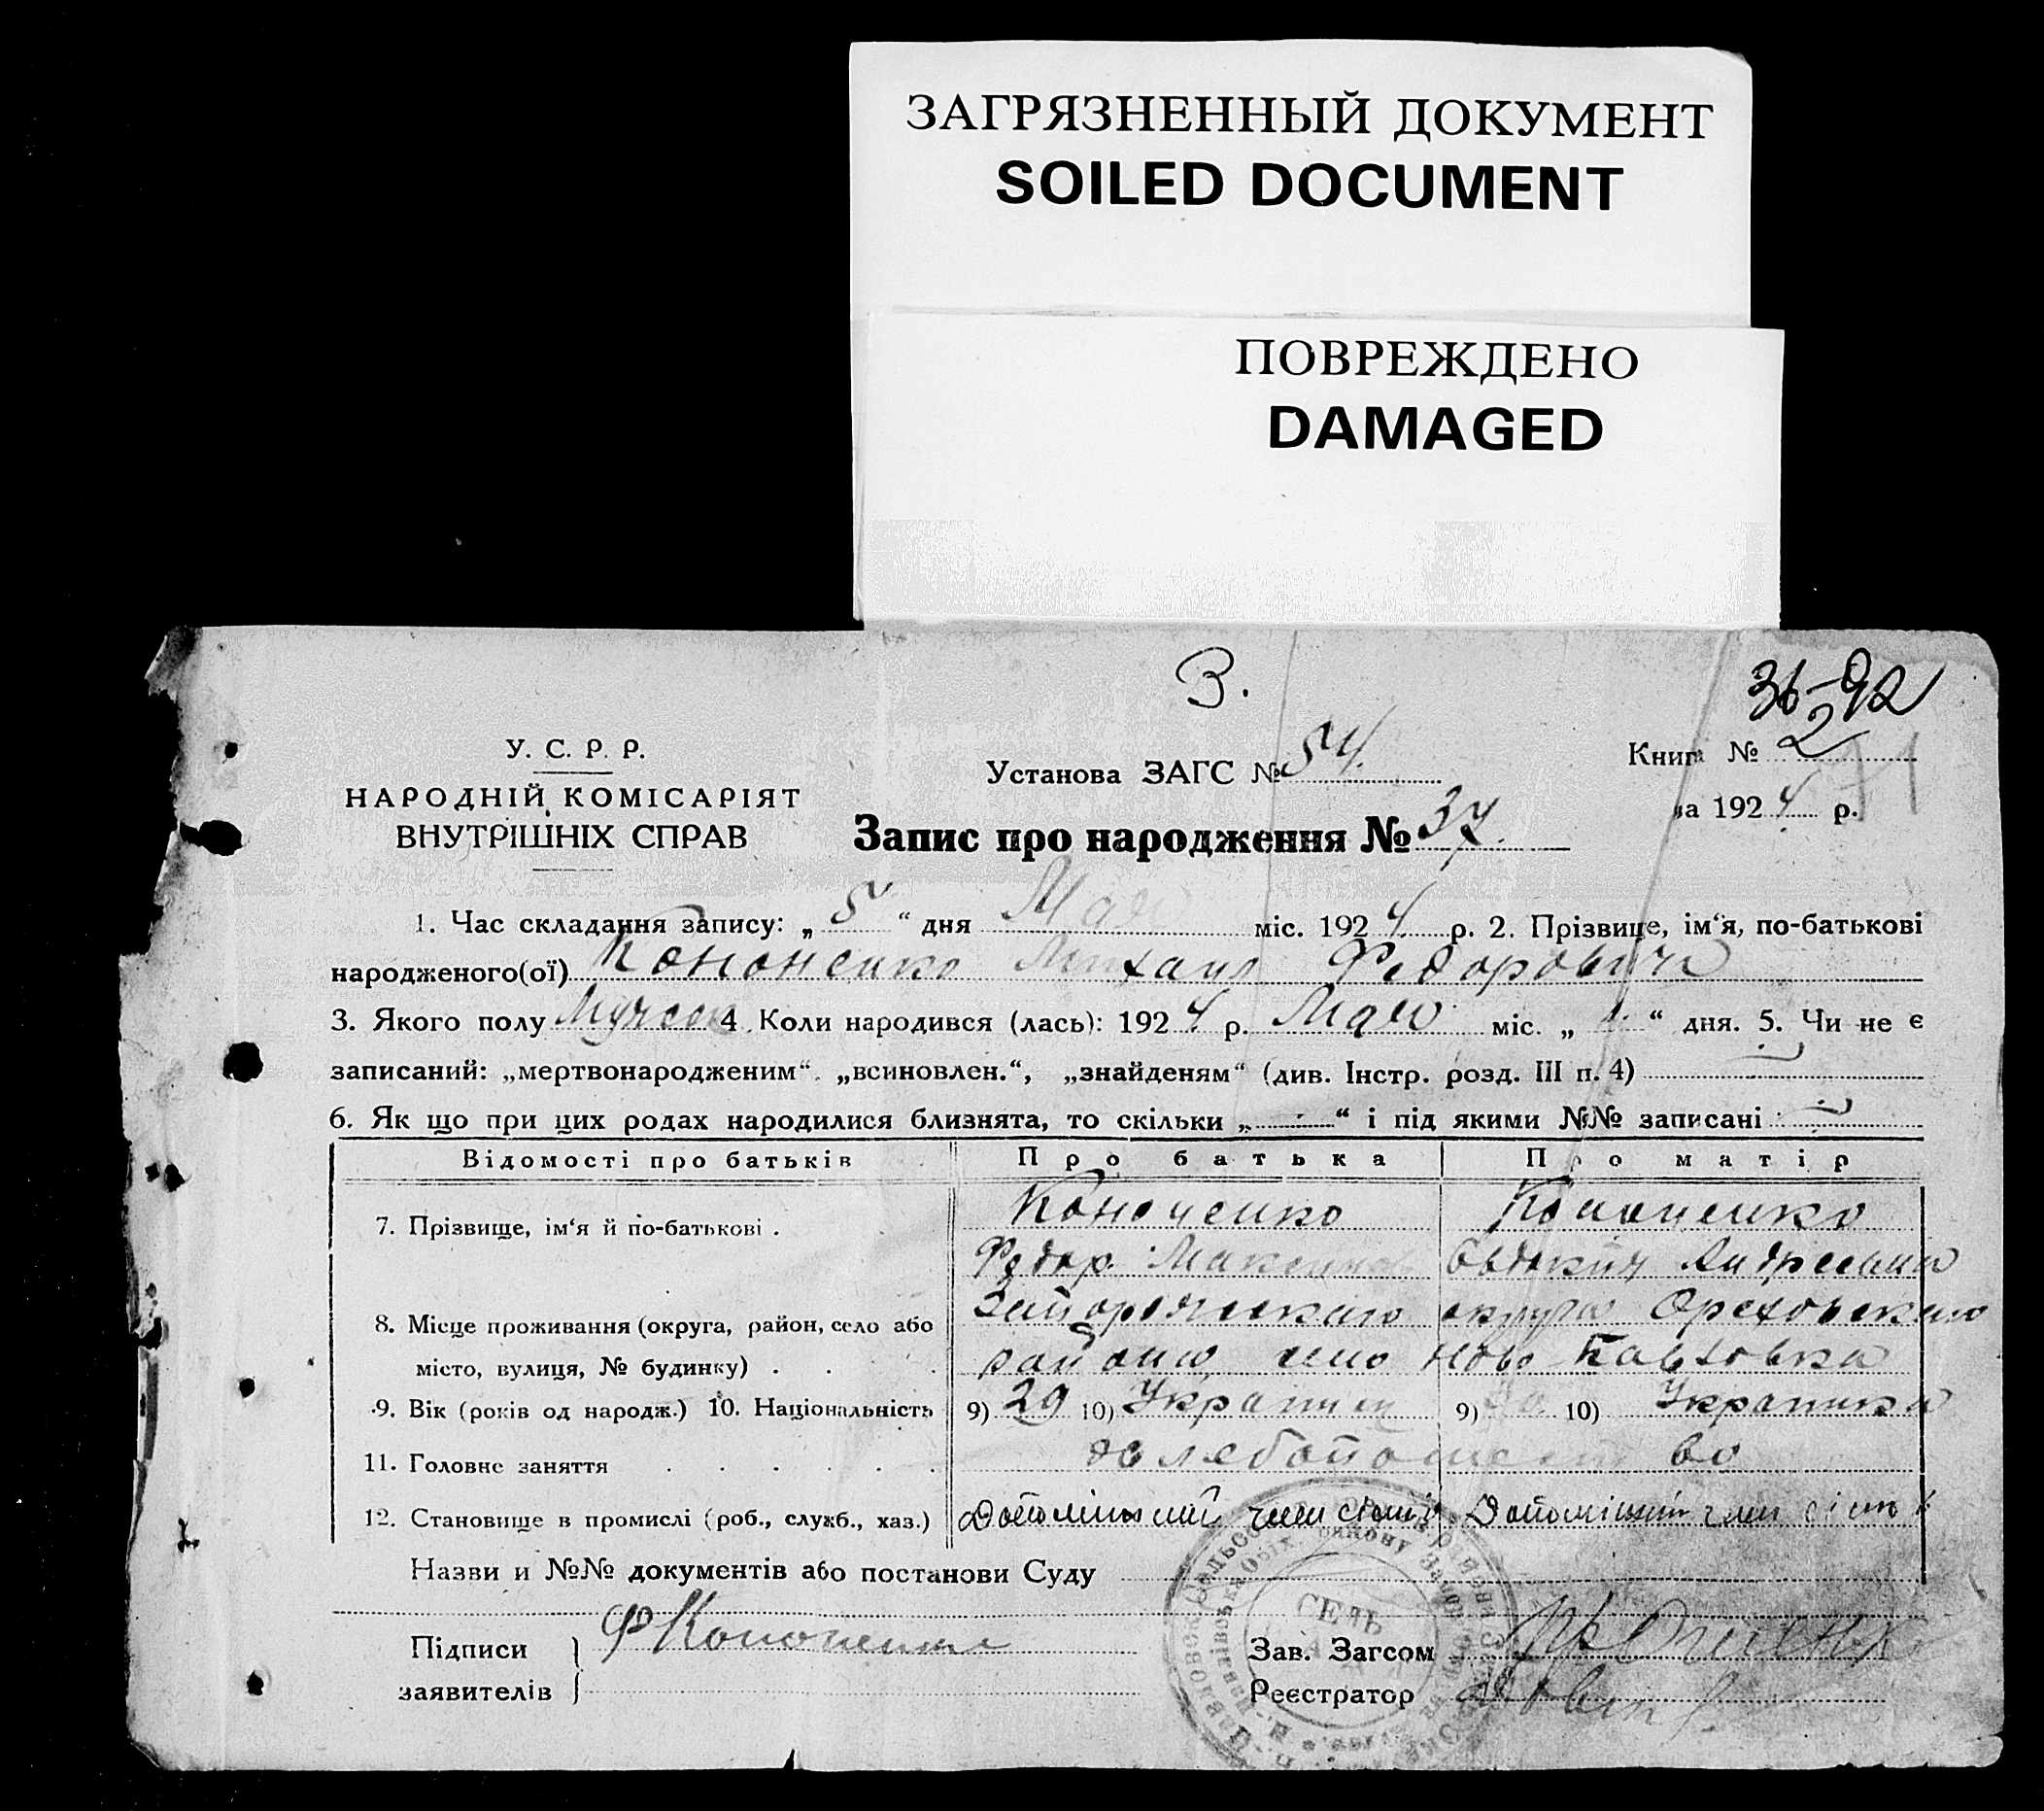 ЗАГРЯЗНЕННЫЙ ДОКУМЕНТ
SOILED DOCUMENT
ПОВРЕЖДЕНО
DAMAGED
3.
36-92
У. С. Р. Р.
НАРОДНІЙ КОМІСАРІЯТ
ВНУТРІШНІХ СПРАВ
Установа ЗАГС № 54.
Книга № 2
за 1924 р.
Запис про народження № 37.
1. Час складання запису: „ 5 “ дня Мая міс. 1924 р. 2. Прізвище, ім‘я, по-батькові
народженого(ої) Кононенко Михаил Федорович
3. Якого полу Мужск 4. Коли народився (лась): 1924 р. Мая міс. „ 1. “ дня. 5. Чи не є
записаний: „мертвонародженим“. „всиновлен.“, „знайденям“ (див. Інстр. розд. III п. 4)
6. Як що при цих родах народилися близнята, то скільки „ - “ і під якими №№ записані
Відомості про батьків Про батька Про матір
7. Прізвище, ім‘я й по-батькові . Кононенко Кононенко
Федор Максимов Евдокия Андреевна
8. Місце проживання (округа, район, село або Запорожскаго округа Ореховскаго
місто, вулиця, № будинку) . . . района село Ново Павловка
9. Вік (років од народж.) 10. Національність 9) 29 10) Украинец 9) 10) Украинка
11. Головне заняття . . . . . . хлебопашество
12. Становище в промислі (роб., служб., хаз.) Допоміжний член сімї Допоміжний член сімї
Назви и №№ документів або постанови Суду
СЕЛЬ
Підписи ФКононенко Зав. Загсом
заявителів Реєстратор